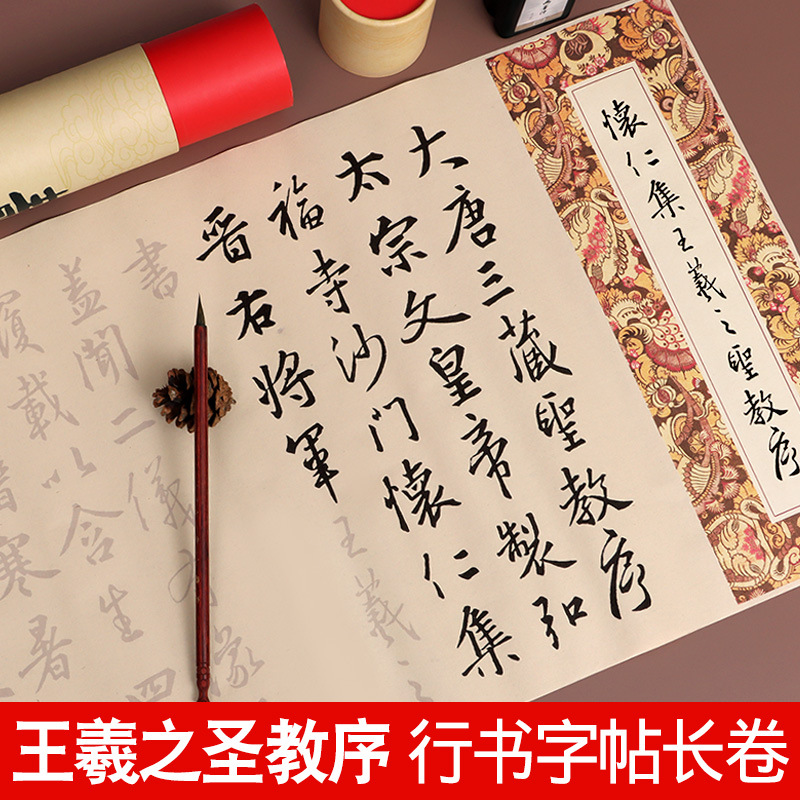 懷仁集王羲之聖教序
大唐三藏聖教序
太宗文皇帝製弘
福寺沙门懷仁集
晉右將軍王羲之
書
盖聞二儀有像
覆載以含生四
寒暑
王羲之圣教序 行书字帖长卷